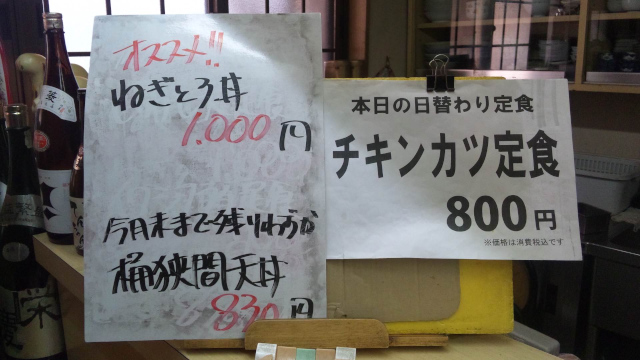 オススメ!!
ねぎとろ丼
1,000円
今月末まで残りわずか
桶狭間天丼
830円
本日の日替わり定食
チキンカツ定食
800円
※価格は消費税込です